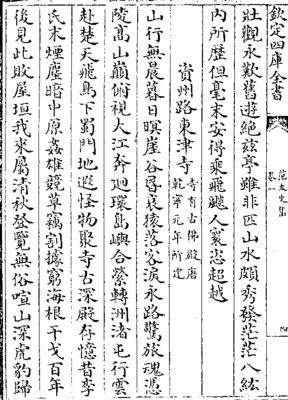 欽定四庫全書
范太史集
卷一
四
壯觀永歎舊遊絶兹亭雖非匹山水頗秀發茫茫八紘
内所歷但毫末安得乗飛飈人寰恣超越
資州路東津寺
寺有古佛殿唐
乾寧元年所建
山行無晨暮日暝崖谷昬哀猿落客淚永路驚旅魂憑
陵高山巔俯視大江奔廻環島嶼合縈轉洲渚屯行雲
赴楚天飛鳥下蜀門地遐怪物聚寺古深殿存憶昔李
氏末煙塵暗中原姦雄競草竊割據窮海根干戈百年
後見此敗屋垣我來屬清秋登覽無俗喧山深虎豹歸